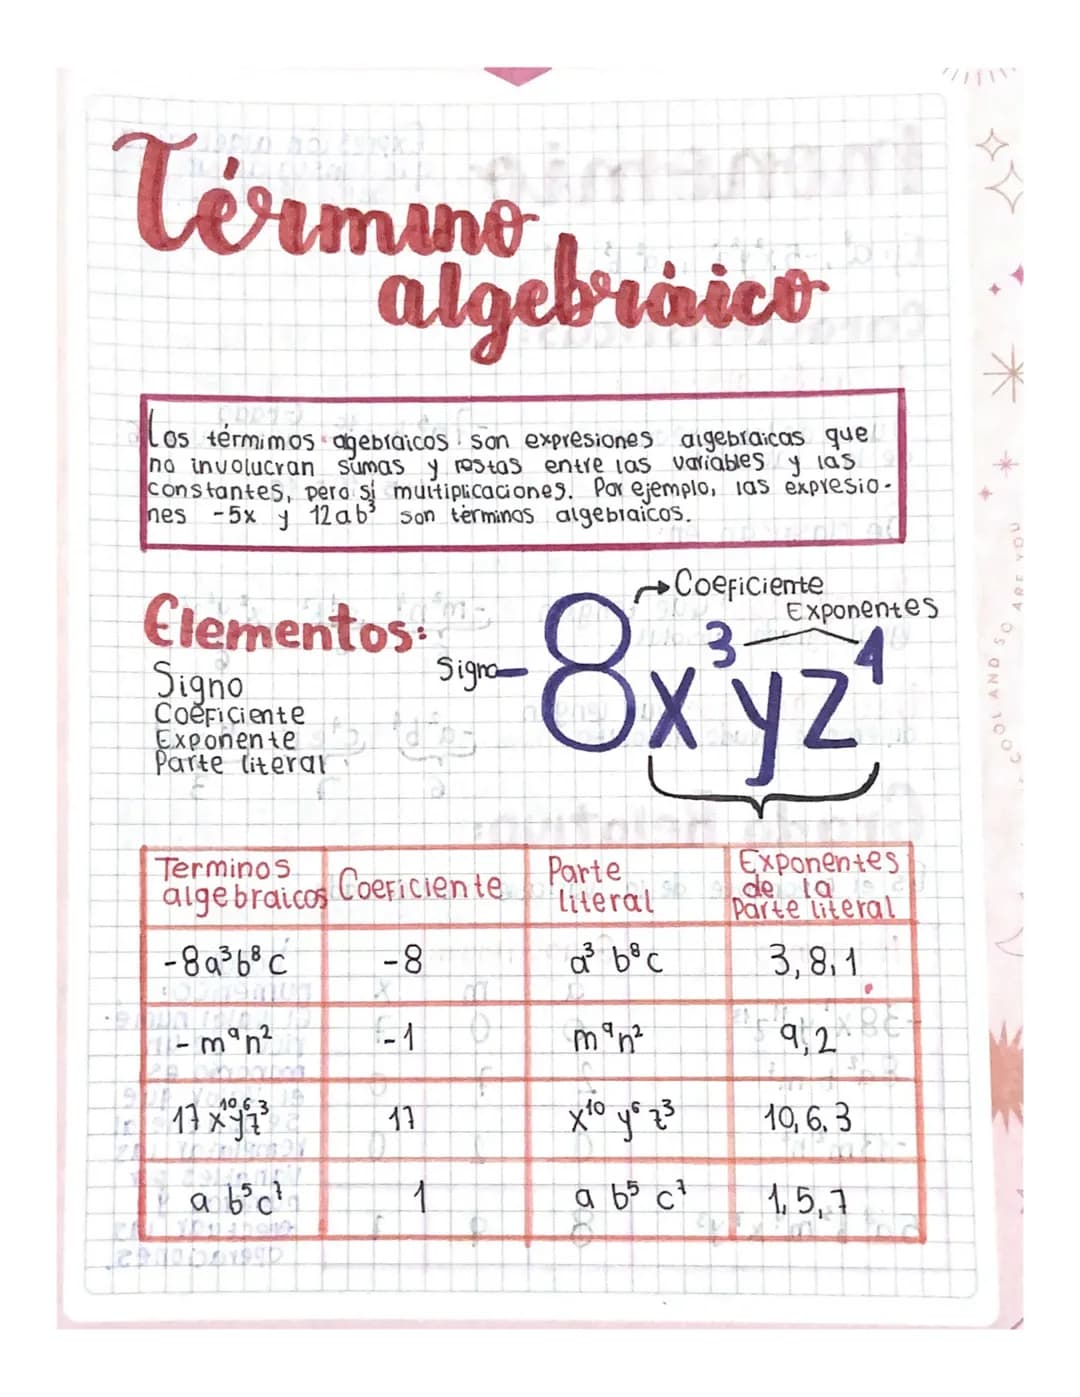 Término
algebráico
Los térmimos agebraicos son expresiones algebraicas que
no involucran sumas y restas entre las variables y las
constantes, pero sí multiplicaciones. Por ejemplo, las expresio-
nes -5x y 12ab³ son términos algebraicos.
Elementos:
Signo
Coeficiente
Exponente
Parte literal
Coeficiente
Exponentes
Signo
-8x³yz⁴
Terminos algebraicos | Coeficiente | Parte literal | Exponentes de la Parte literal
-8a³b⁸c | -8 | a³ b⁸c | 3, 8, 1
-m⁹n² | -1 | m⁹n² | 9, 2
17x¹⁰y⁶z³ | 17 | x¹⁰ y⁶ z³ | 10, 6, 3
a b⁵c⁷ | 1 | a b⁵ c⁷ | 1, 5, 7
COOL AND SO ARE YOU